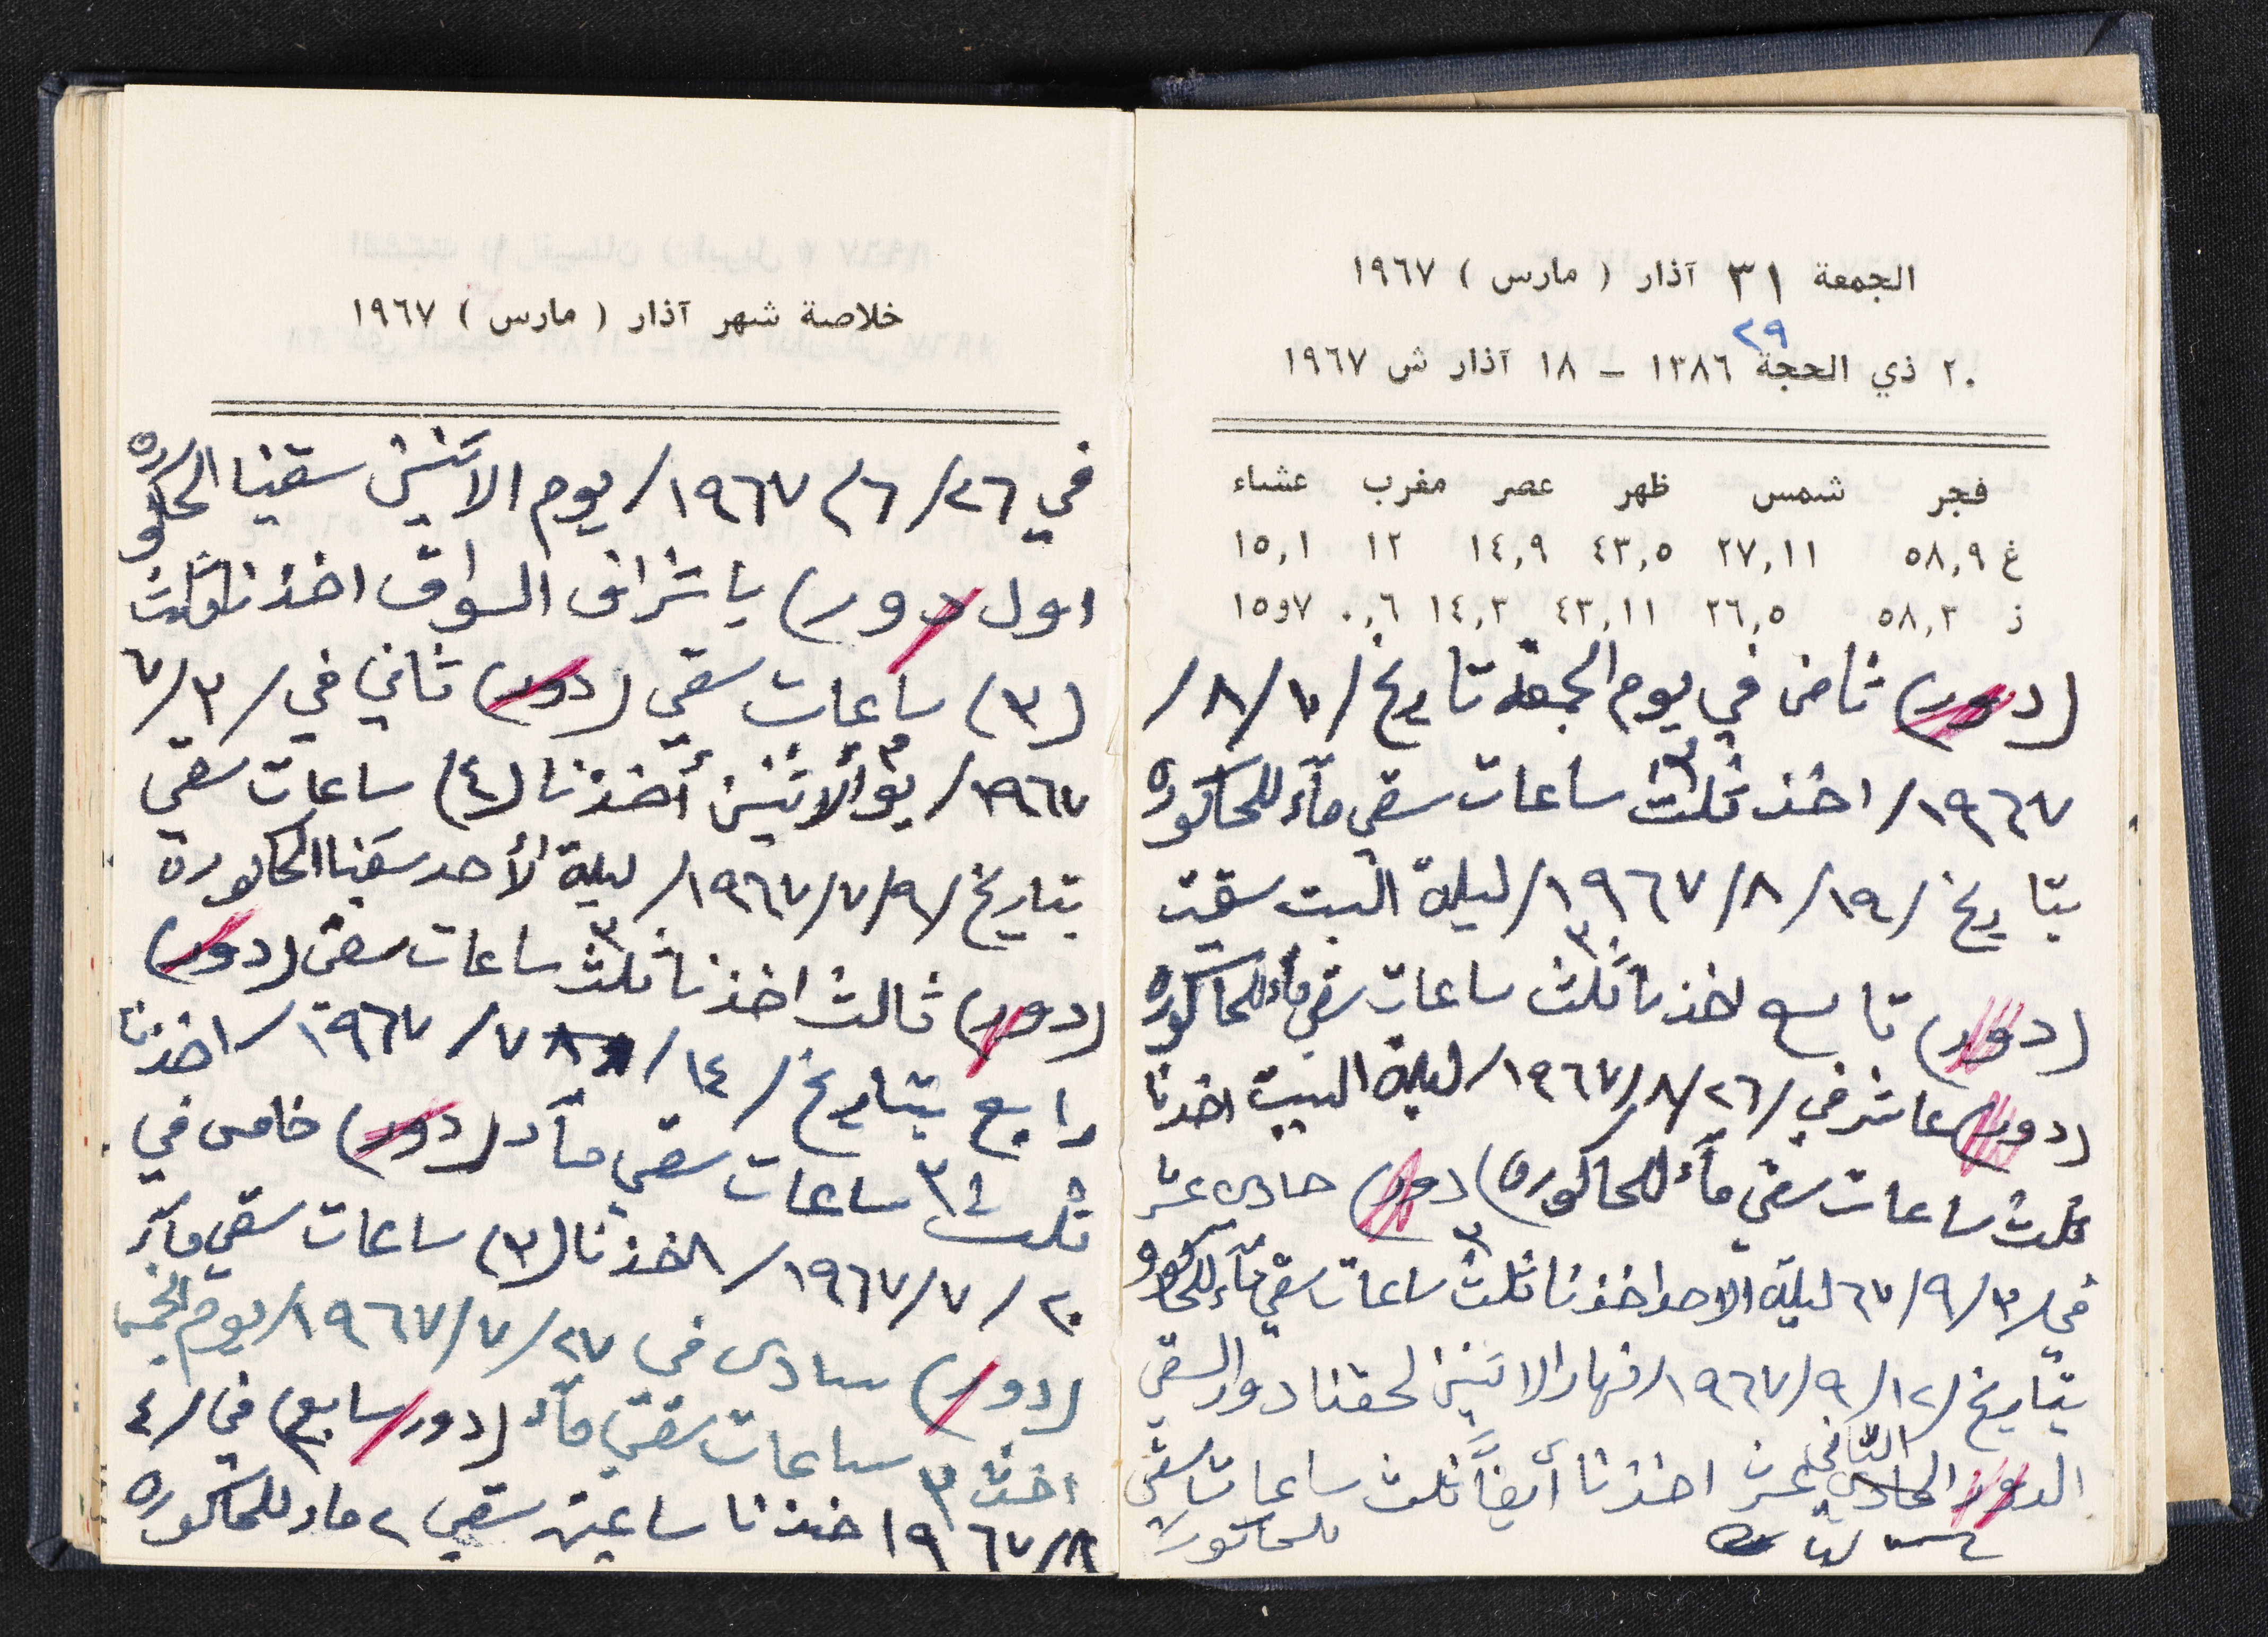 الجمعة ٣١ آذار ( مارس ) ١٩٦٧
٢٩
٢٠ ذي الحجة ١٣٨٦ – ١٨ آذار ش ١٩٦٧
فجر شمس ظهر عصر مغرب عشاء
غ ٥٨,٩ ٢٧,١١ ٤٣,٥ ١٤,٩ ١٢ ١٥,١
ز ٥٨,٣ ٢٦,٥ ٤٣,١١ ١٤,٣ ٠,٦ ٧و١٥
(دور) ثامن في يوم الجمعة تاريخ /٨/
١٩٦٧/ اخذ ثلث ٣ ساعات سقي مآء للحاكوره
بتاريخ /١٩/ ٨/ ١٩٦٧/ ليلة السبت سقيت
(دور) تاسع اخذنا ثلث ٣ ساعات سقي مآء للحاكوره
(دور) عاشر في /٢٦/ ٨/ ١٩٦٧/ ليلة السبت اخذنا
ثلث ساعات سقي مآء للحاكوره) دور) حادي عشر
في /٣/ ٩/ ٦٧ ليلة الاحد اخذنا ثلث ٣ ساعات سقي مآء للحاكوره
بتاريخ /١٢/ ٩/ ١٩٦٧/ نهار الاثنين لحقنا دوار السقي
الدور الحادي الثاني عشر اخذنا أيضاً ثلث ساعات سقي
للحاكورة
خلاصة شهر آذار ( مارس ) ١٩٦٧
في ٢٦/ ٦/ ١٩٦٧/ يوم الاثنين سقينا الحاكوره
اول دور) باشراف السواق اخذنا ثلث
(٣) ساعات سقي (دور) ثاني في /٣/ ٧
١٩٦٧/ يوم ألاثنين أخذنا (٤) ساعات سقي
بتاريخ /٩/ ٧/ ١٩٦٧/ ليلة لأحد سقينا الحاكورة
(دور) ثالث اخذنا ثلث ٣ ساعات سقي (دور)
رابع بتاريخ /١٤/ ٧/ ١٩٦٧/ اخذنا
ثلث ٣ ساعات سقي مآء (دور) خامس في
٢٠/ ٧/ ١٩٦٧/ اخذنا (٣) ساعات سقي مآء
(دور) سادس في ٢٧/ ٧/ ١٩٦٧/ يوم
اخذت ٣ ساعات سقي مآء (دور سابع) في /٤
٨/ ١٩٦٧ اخذنا ساعين سقي ٢ ماء للحاكوره